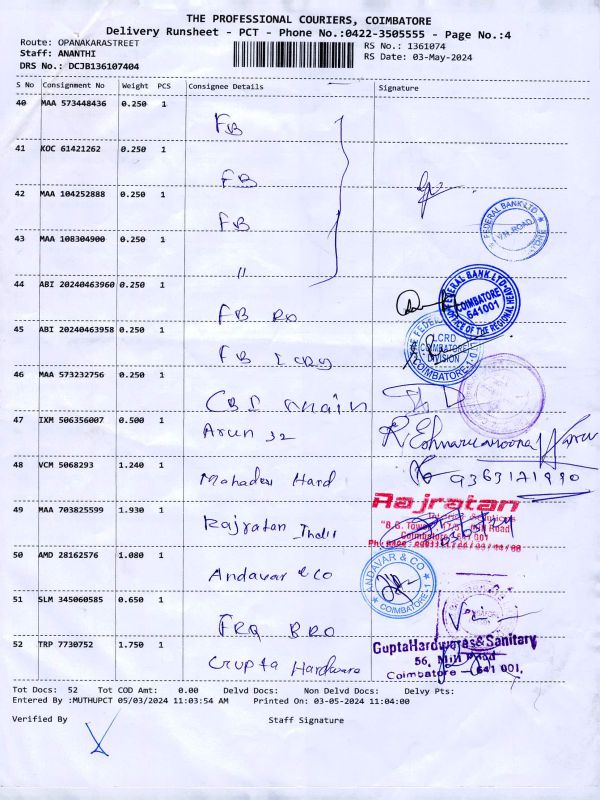 THE PROFESSIONAL COURIERS, COIMBATORE
Delivery Runsheet - PCT - Phone No.:0422-3505555 - Page No.:4
Route: OPANAKARASTREET
RS No.: 1361074
Staff: ANANTHI
RS Date: 03-May-2024
DRS No.: DCJB136107404
S No Consignment No Weight PCS Consignee Details Signature
40 MAA 573448436 0.250 1
FB
41 KOC 61421262 0.250 1
FB
42 MAA 104252888 0.250 1
FB
FEDERAL BANK LTD
V.H. ROAD
43 MAA 108304900 0.250 1
"
44 ABI 20240463960 0.250 1
FB RO
FEDERAL BANK LTD
COIMBATORE
641001
OFFICE OF THE REGIONAL HEAD
45 ABI 20240463958 0.250 1
FB LCRD
THE FEDERAL
LCRD
COIMBATORE
DIVISION
COIMBATORE-1
46 MAA 573232756 0.250 1
CBI main
47 IXM 506356007 0.500 1
Arun 32
48 VCM 5068293 1.240 1
Mahadev Hard
9363171990
49 MAA 703825599 1.930 1
Rajratan Indu
Rajratan
Coimbatore 641 001
50 AMD 28162576 1.080 1
Andavar & Co
ANDAVAR & CO
COIMBATORE-1
51 SLM 345060585 0.650 1
FRQ BRO
52 TRP 7730752 1.750 1
Gupta Hardware
GuptaHardwares&Sanitary
56, Mill Road
Coimbatore - 641 001.
Tot Docs: 52 Tot COD Amt: 0.00 Delvd Docs: Non Delvd Docs: Delvy Pts:
Entered By :MUTHUPCT 05/03/2024 11:03:54 AM Printed On: 03-05-2024 11:04:00
Verified By Staff Signature